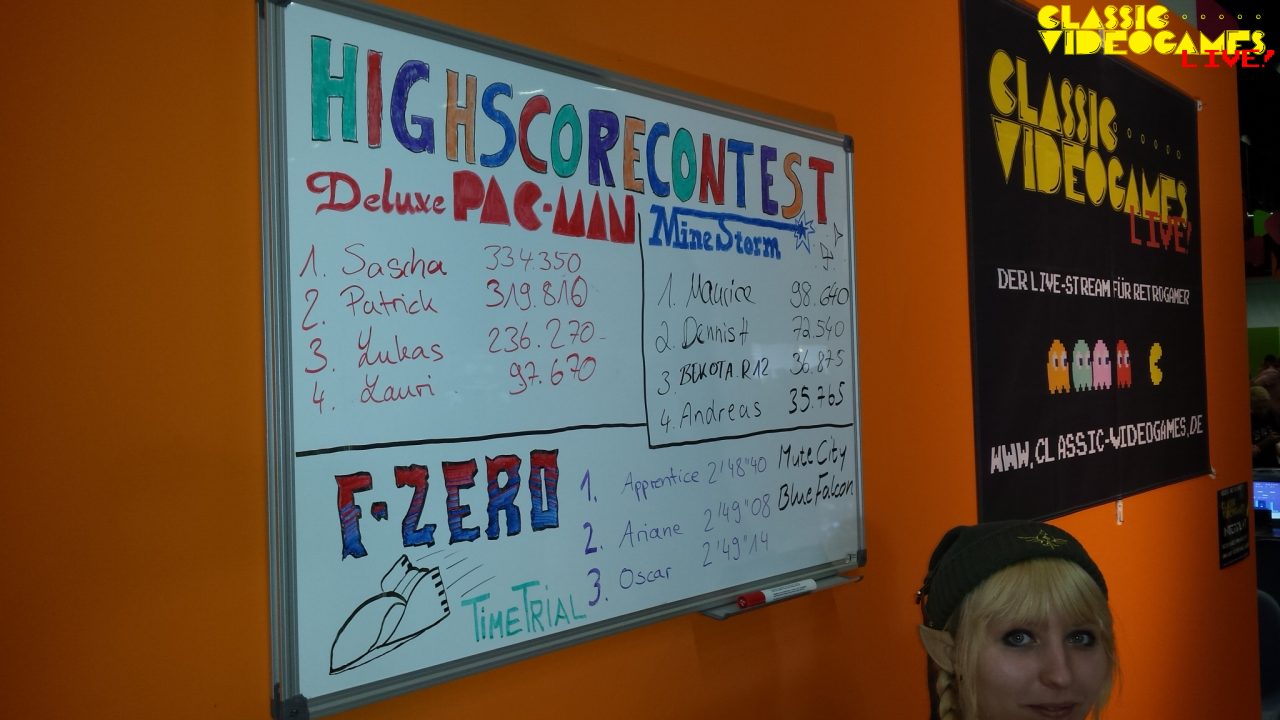 HIGHSCORECONTEST
Deluxe PAC-MAN
1. Sascha 334.350
2. Patrick 319.810
3. Lukas 236.270
4. Lauri 97.670
MineStorm
1. Maurice 98.640
2. Dennis H 72.540
3. BEKOTA.R12 36.875
4. Andreas 35.765
F-ZERO
TIMETRIAL
1. Apprentice 2'48"40
2. Ariane 2'49"08
3. Oscar 2'49"14
Mute City
Blue Falcon
CLASSIC
VIDEOGAMES
LIVE!
DER LIVE-STREAM FÜR RETROGAMER
WWW.CLASSIC-VIDEOGAMES.DE
CLASSIC
VIDEOGAMES
LIVE!